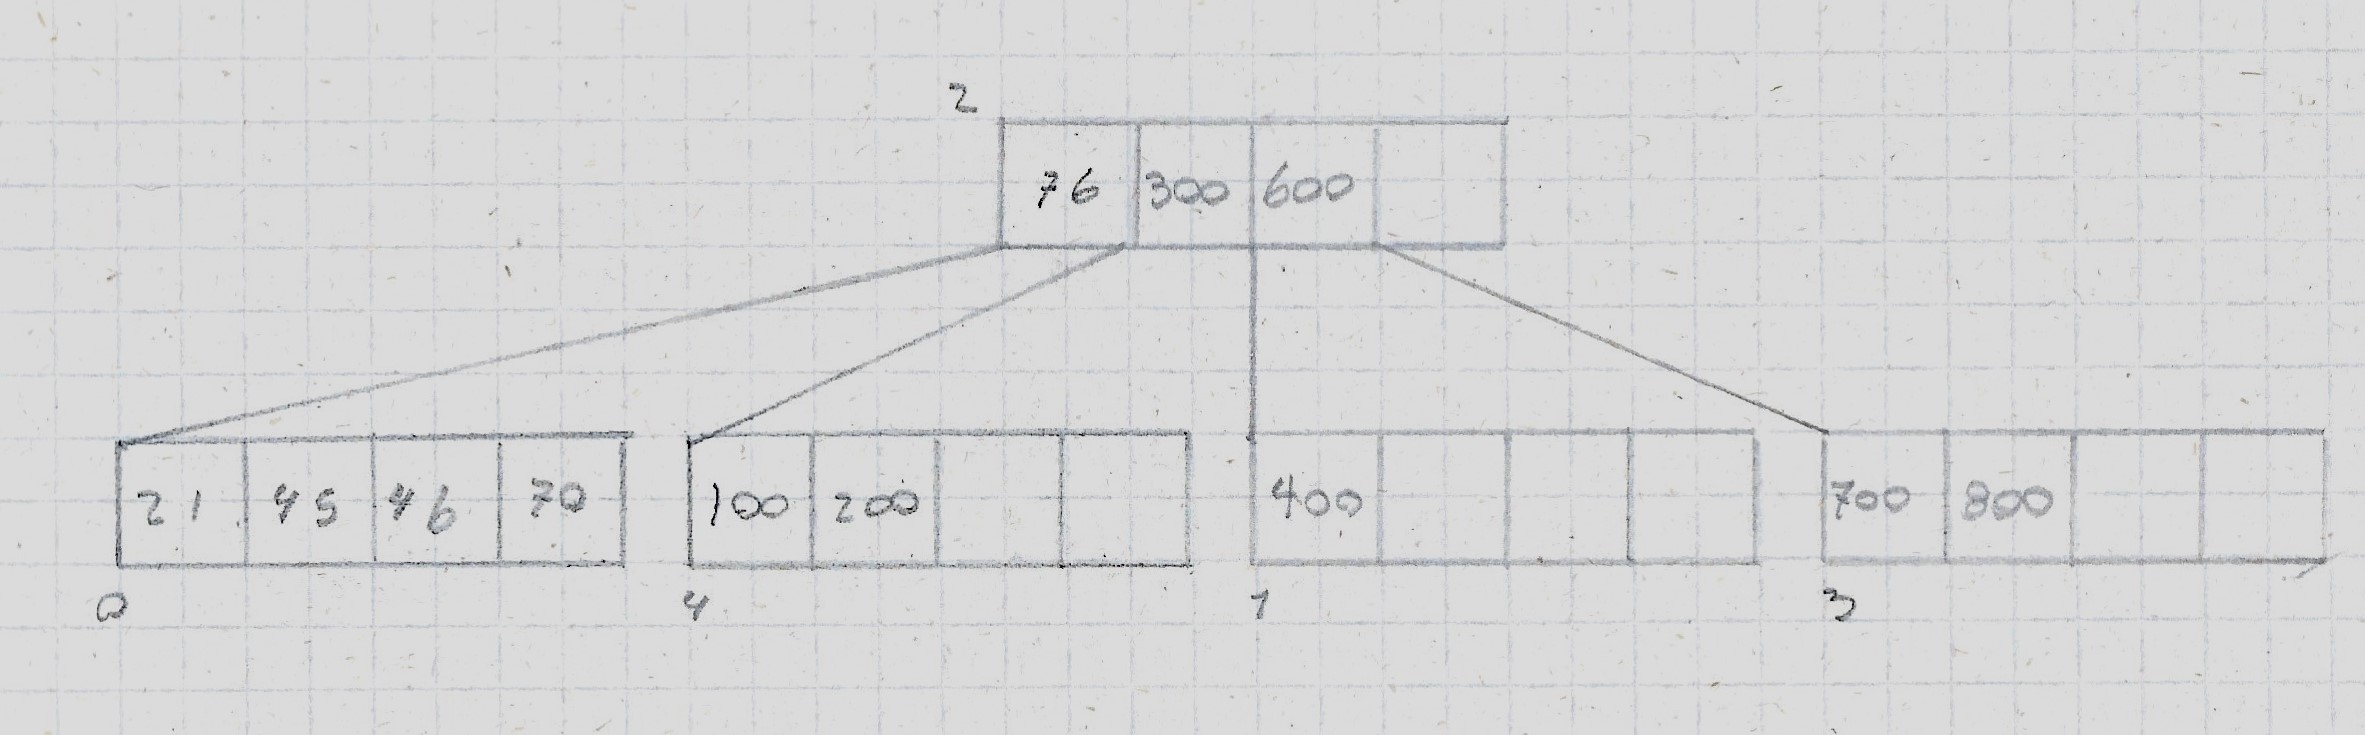 2
76 300 600
21 45 46 70 100 200 400 700 800
0 4 1 3